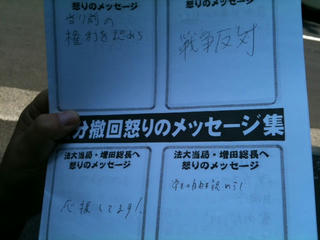 怒りのメッセージ
怒りのメッセージ
当り前の
権利を認めろ
戦争反対
分撤回怒りのメッセージ集
法大当局・増田総長へ
怒りのメッセージ
法大当局・増田総長へ
怒りのメッセージ
応援してます!
認めろ!